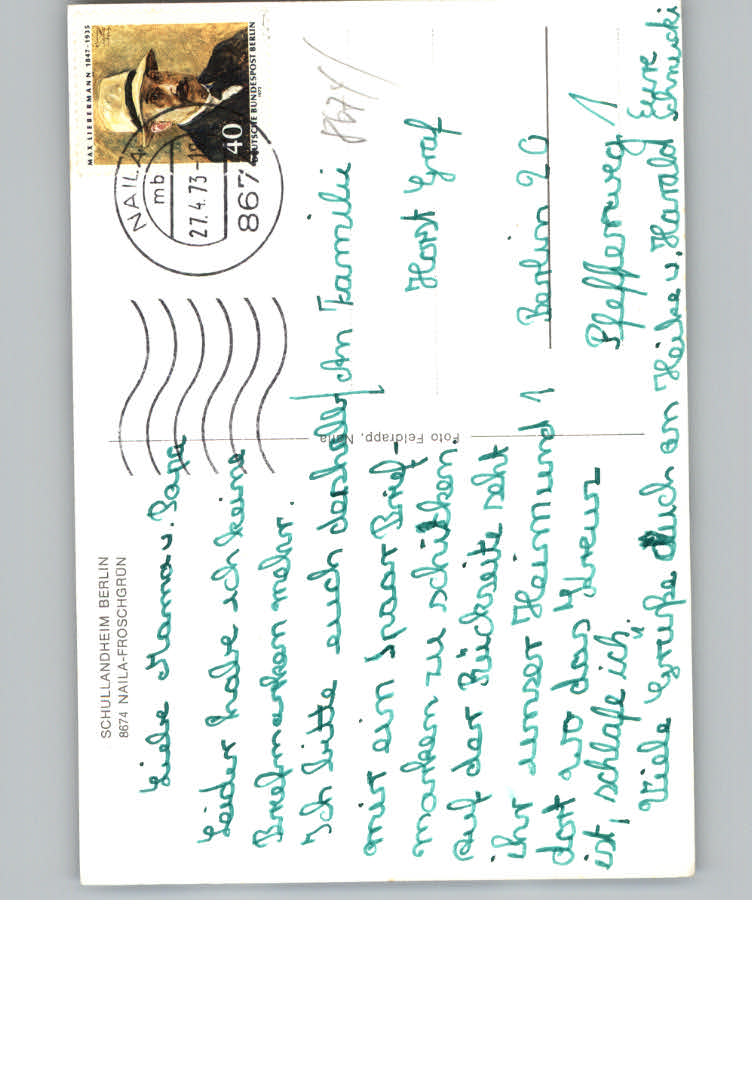 SCHULLANDHEIM BERLIN
8674 NAILA-FROSCHGRÜN
Liebe Mama u. Papa
Leider habe ich keine
Briefmarken mehr.
Ich bitte euch deshalb
mir ein Spaar Brief-
marken zu schikken.
Auf der Rückseite seht
ihr unser Heim und
dort wo das Kreuz
ist, schlafe ich.
Viele Grüße Auch an Heike u. Harald Eure
Foto Feldrapp, Naila
MAX LIEBERMANN 1847-1935
40
DEUTSCHE BUNDESPOST BERLIN
1972
NAILA
mb
27.4.73
867
8674
An Familie
Horst Graf
Berlin 20
Pfefferweg 1